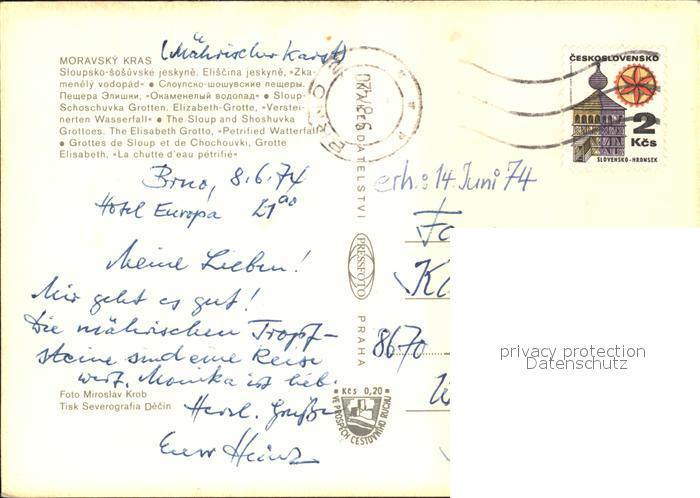 (Mährischer Karst)
MORAVSKÝ KRAS
Sloupsko-šošůvské jeskyně. Eliščina jeskyně, »Zka-
menělý vodopád« • Слоупско-шошувские пещеры.
Пещера Элишки, «Окаменелый водопад» • Sloup-
Schoschuvka Grotten. Elizabeth-Grotte, »Verstei-
nerten Wasserfall« • The Sloup and Shoshuvka
Grottoes. The Elisabeth Grotto, »Petrified Waterfall«
• Grottes de Sloup et de Chochouvki, Grotte
Elisabeth, »La chutte d'eau pétrifié«
Brno, 8.6.74
Hotel Europa 21⁰⁰
Meine Lieben!
Mir geht es gut!
Die mährischen Tropf-
steine sind eine Reise
wert. Monika ist lieb.
Herzl. Grüße
Euer Heinz
Foto Miroslav Krob
Tisk Severografia Děčín
BRNO
PRESSFOTO
PRAHA
Kčs 0,20
VE PROSPĚCH CESTOVNÍHO RUCHU
ČESKOSLOVENSKO
2
Kčs
SLOVENSKO-HRONSEK
erh.: 14. Juni 74
8670
privacy protection
Datenschutz